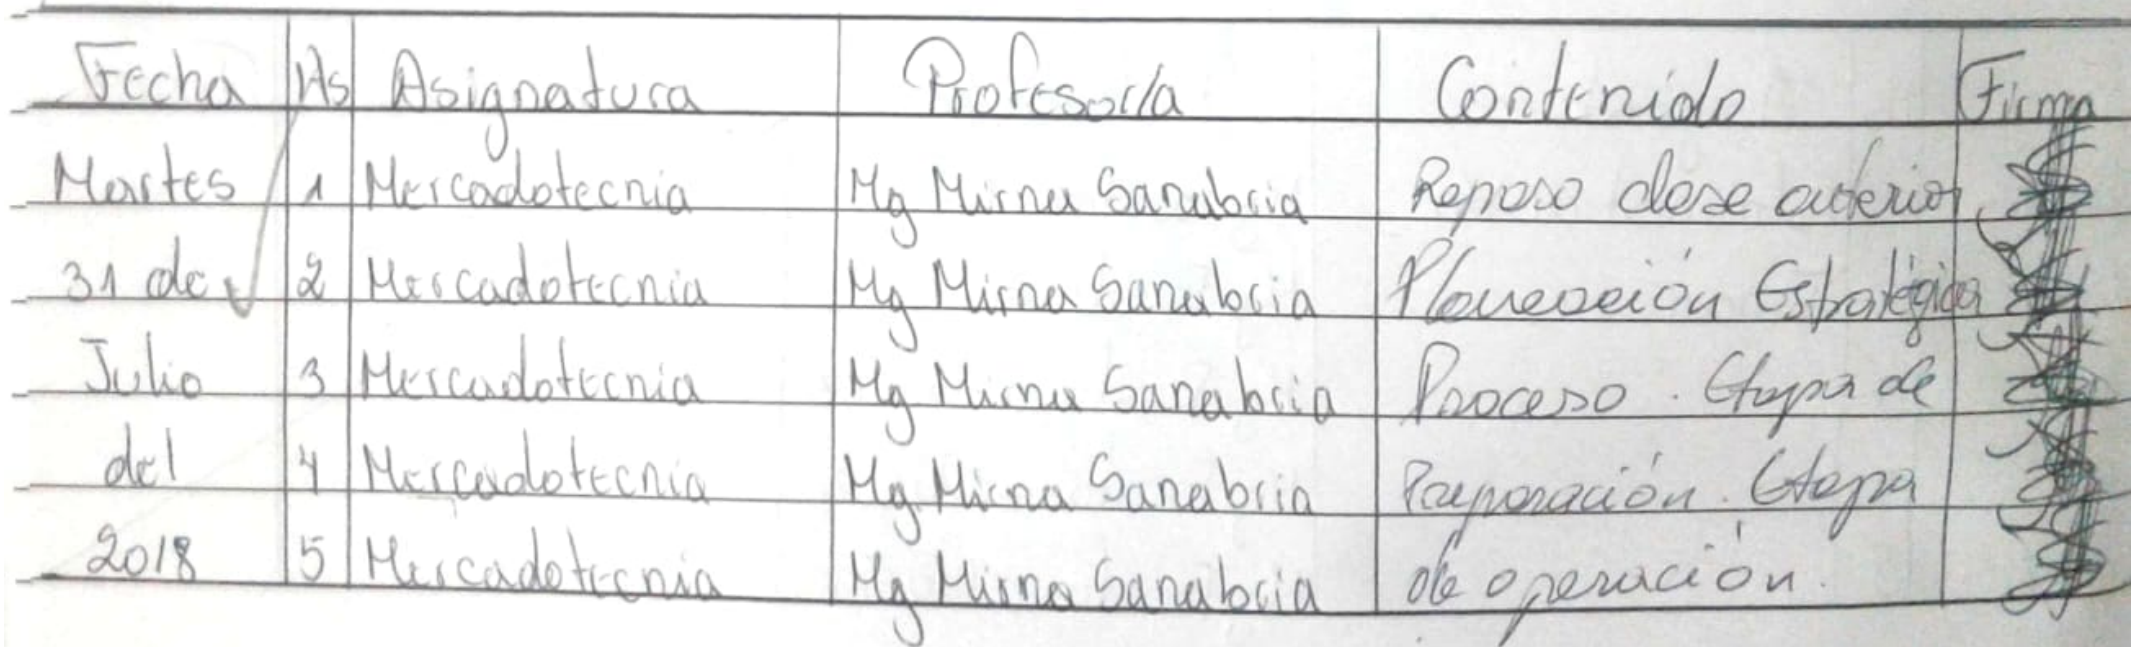 Fecha Hs Asignatura Profesor/a Contenido Firma
Martes 1 Mercadotecnia Mg Mirna Sanabria Repaso clase anterior
31 de 2 Mercadotecnia Mg Mirna Sanabria Planeación Estratégica
Julio 3 Mercadotecnia Mg Mirna Sanabria Proceso. Etapa de
del 4 Mercadotecnia Mg Mirna Sanabria Preparación. Etapa
2018 5 Mercadotecnia Mg Mirna Sanabria de operación.